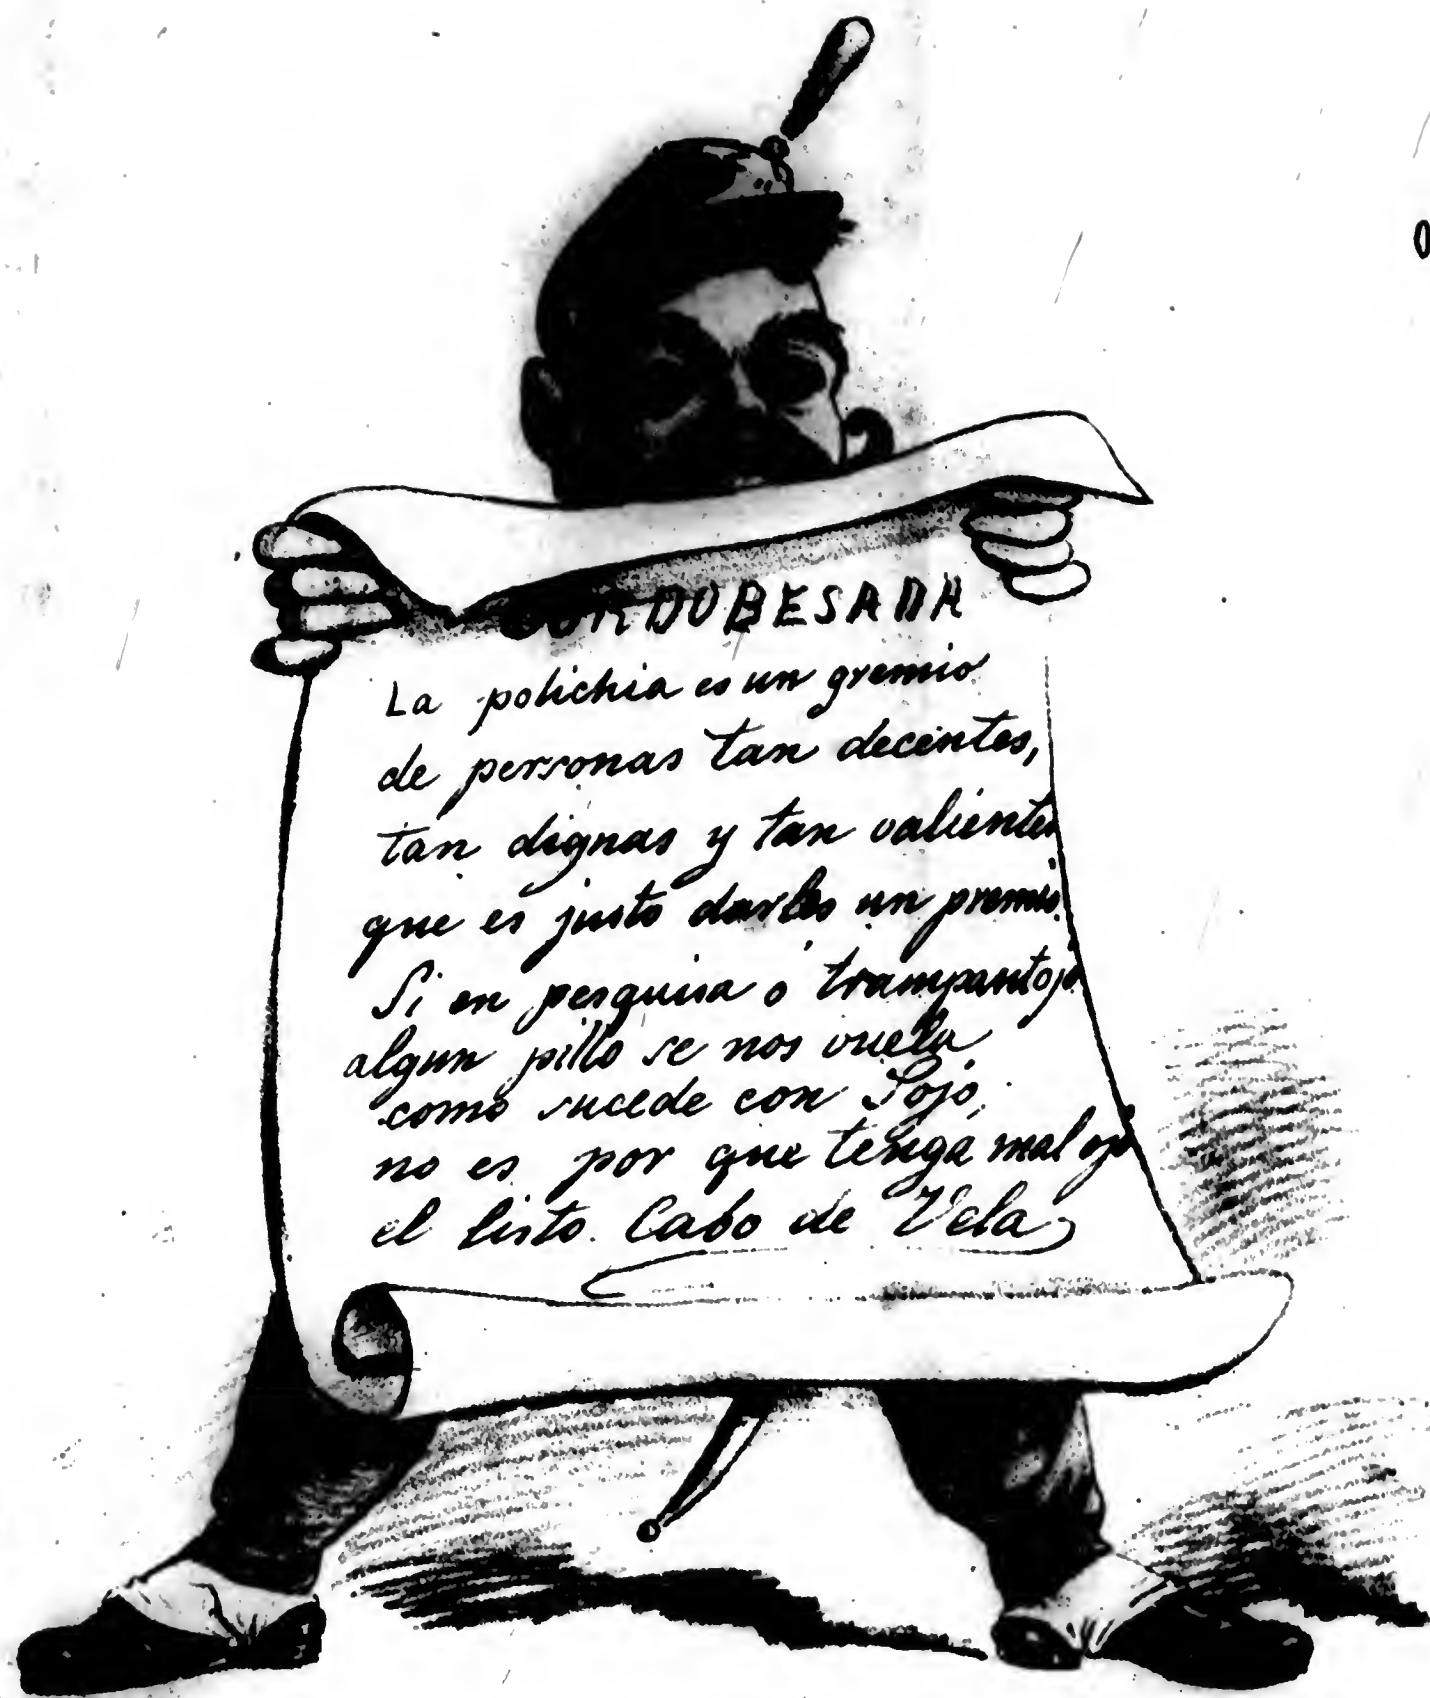 CORDOBESADA
La polichia es un gremio
de personas tan decentes,
tan dignas y tan valientes
que es justo darles un premio.
Si en pesquisa o trampantojo
algun pillo se nos vuela
como sucede con Sojo,
no es por que tenga mal ojo
el listo Cabo de Vela